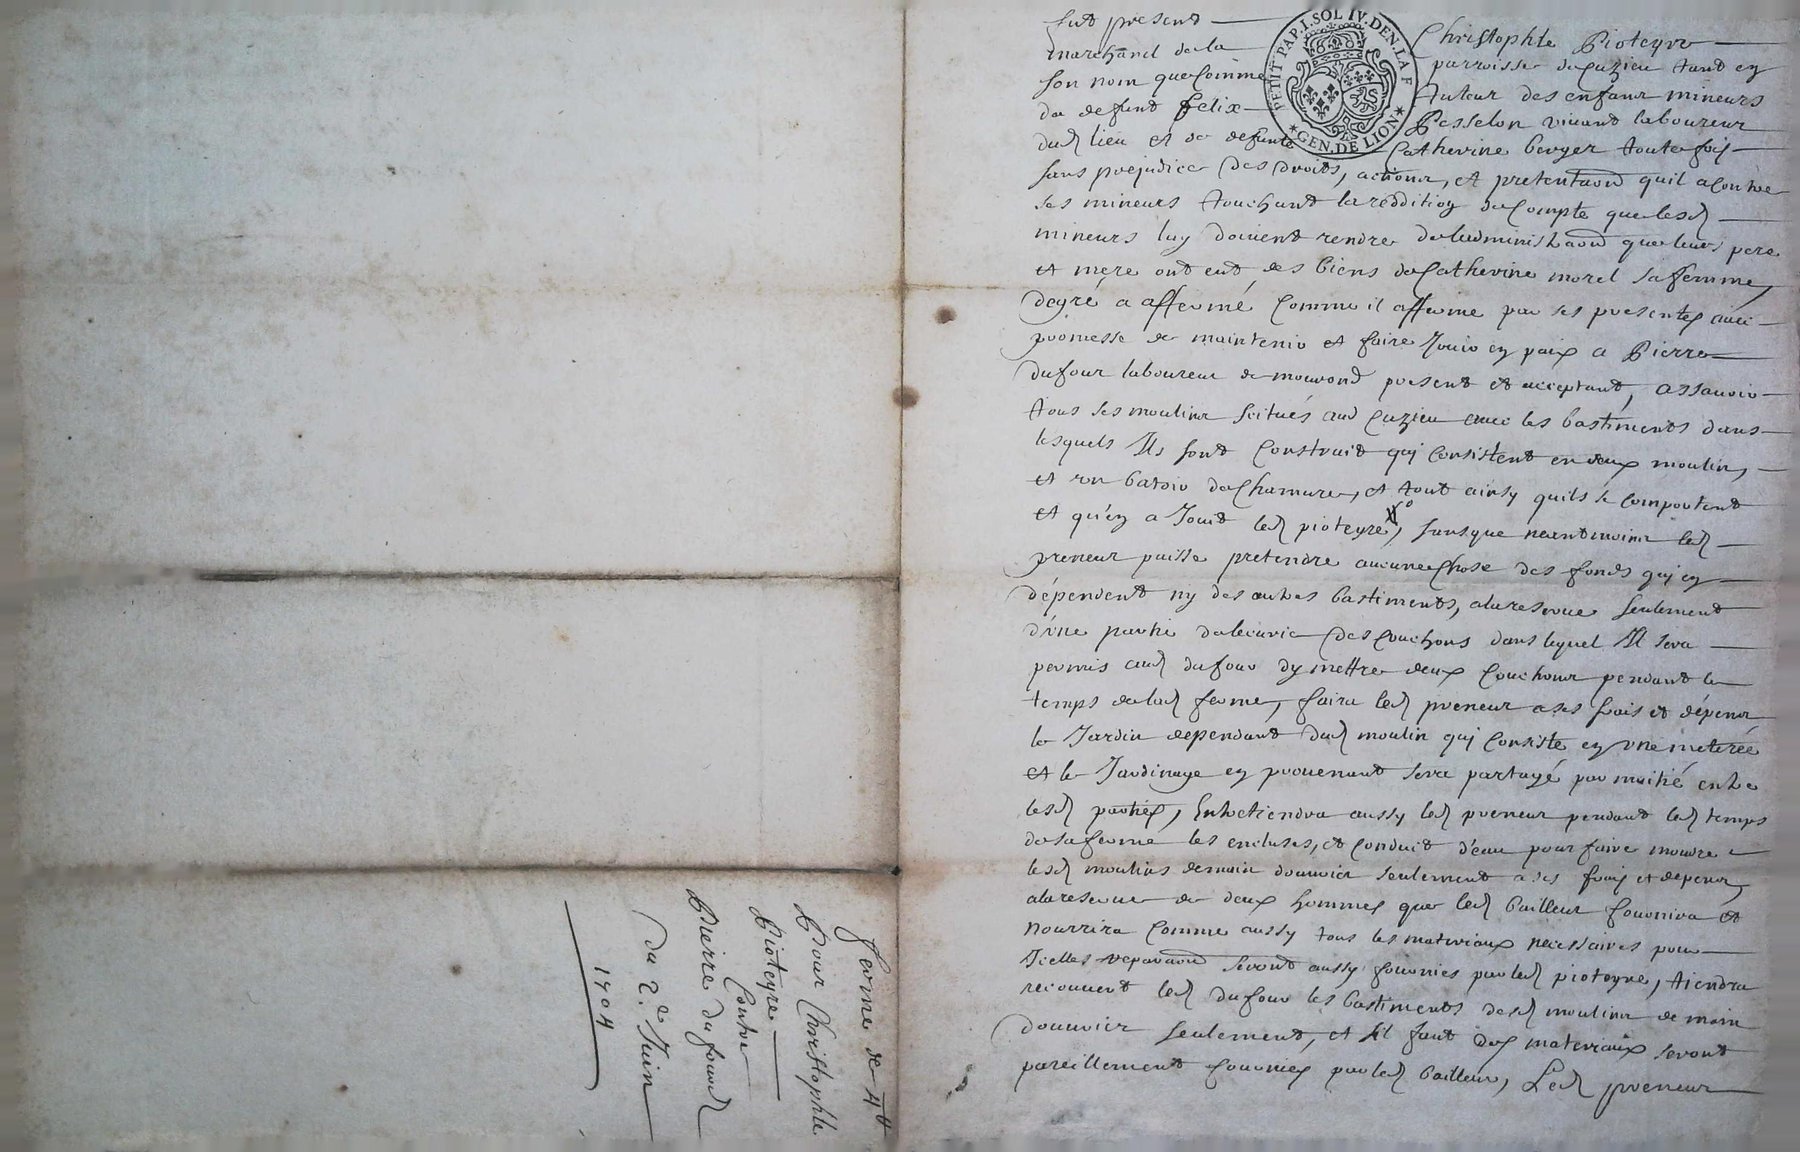 PETIT PAP. I. SOL IV. DEN. LA F
GEN. DE LION
fut present Christophle Pioteyre
marchand de la parroisse de Cuzieu tant en
son nom que Comme tuteur des enfans mineurs
de defunt felix Besselon vivant laboureur
dud lieu et de defunte Catherine berger toutefois
sans prejudice des droits, actions, et pretentions quil a contre
ses mineurs touchant la reddition de Compte que lesd
mineurs luy doivent rendre de ladministraon que leurs pere
et mere ont eut des biens de Catherine morel sa femme,
degré a affermé Comme il afferme par ses presentes avec
promesse de maintenir et faire Jouir en paix a Pierre
dufour laboureur de present et acceptant, assavoir
tous ses moulins scitués aud Cuzieu avec les bastiments dans
lesquels Ils sont Construit qui Consistent en deux moulins,
et un batoir de Chanvre, et tout ainsy quils se Comportent
et qu'en a Jouit led pioteyre, sans que neantmoins led
preneur puisse pretendre aucune Chose des fonds qui en
dépendent ny des autres bastiments, a la reserve seulement
d'une partie de lecurie des Couchons dans lequel Il sera
permis aud dufour dy mettre deux Couchons pendant le
temps de lad ferme, faira led preneur a ses frais et dépens
le Jardin dependant dud moulin qui Consiste en une meterée
et le Jardinage en provenant sera partagé par moitié entre
lesd parties, Entretiendra aussy led preneur pendant led temps
de sa ferme les encluses, et Conduit d'eau pour faire moudre
lesd moulins de main douvrier seulement a ses frais et depens,
a la reserve de deux hommes que led bailleur fournira et
nourrira Comme aussy tous les materiaux necessaires pour
Icelles reparaons seront aussy fournies par led pioteyre, tiendra
recouvert led dufour les bastiments desd moulins de main
douvrier seulement, et sil faut des materiaux seront
pareillement fournies par led bailleur, Led preneur
ferme de 4#
Pour Christophle
Pioteyre
Contre
Pierre dufour
Du 2e Juin
1704